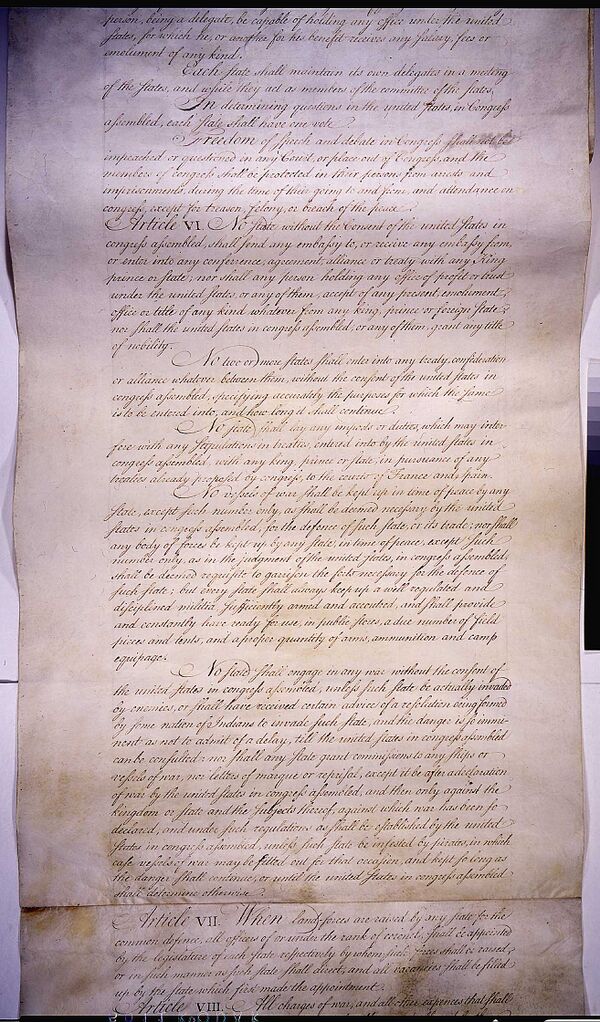 person, being a delegate, be capable of holding any office under the united
states, for which he, or another for his benefit receives any salary, fees or
emolument of any kind.
Each state shall maintain its own delegates in a meeting
of the states, and while they act as members of the committee of the states.
In determining questions in the united states, in Congress
assembled, each state shall have one vote.
Freedom of speech and debate in Congress shall not be
impeached or questioned in any Court, or place out of Congress, and the
members of congress shall be protected in their persons from arrests and
imprisonments, during the time of their going to and from, and attendance on
congress, except for treason, felony, or breach of the peace.
Article VI. No state without the Consent of the united states in
congress assembled, shall send any embassy to, or receive any embassy from,
or enter into any conference, agreement, alliance or treaty with any King
prince or state; nor shall any person holding any office of profit or trust
under the united states, or any of them, accept of any present, emolument,
office or title of any kind whatever from any king, prince or foreign state;
nor shall the united states in congress assembled, or any of them, grant any title
of nobility.
No two or more states shall enter into any treaty, confederation
or alliance whatever between them, without the consent of the united states in
congress assembled, specifying accurately the purposes for which the same
is to be entered into, and how long it shall continue.
No state shall lay any imposts or duties, which may inter
fere with any stipulations in treaties, entered into by the united states in
congress assembled, with any king, prince or state, in pursuance of any
treaties already proposed by congress, to the courts of France and Spain.
No vessels of war shall be kept up in time of peace by any
state, except such number only, as shall be deemed necessary by the united
states in congress assembled, for the defence of such state, or its trade; nor shall
any body of forces be kept up by any state, in time of peace, except such
number only, as in the judgment of the united states, in congress assembled,
shall be deemed requisite to garrison the forts necessary for the defence of
such state; but every state shall always keep up a well regulated and
disciplined militia, sufficiently armed and accoutred, and shall provide
and constantly have ready for use, in public stores, a due number of field
pieces and tents, and a proper quantity of arms, ammunition and camp
equipage.
No state shall engage in any war without the consent of
the united states in congress assembled, unless such state be actually invaded
by enemies, or shall have received certain advice of a resolution being formed
by some nation of Indians to invade such state, and the danger is so immi-
nent as not to admit of a delay, till the united states in congress assembled
can be consulted: nor shall any state grant commissions to any ships or
vessels of war, nor letters of marque or reprisal, except it be after a declaration
of war by the united states in congress assembled, and then only against the
kingdom or state and the subjects thereof, against which war has been so
declared, and under such regulations as shall be established by the united
states in congress assembled, unless such state be infested by pirates, in which
case vessels of war may be fitted out for that occasion, and kept so long as
the danger shall continue, or until the united states in congress assembled
shall determine otherwise.
Article VII. When land-forces are raised by any state for the
common defence, all officers of or under the rank of colonel, shall be appointed
by the legislature of each state respectively by whom such forces shall be raised,
or in such manner as such state shall direct, and all vacancies shall be filled
up by the state which first made the appointment.
Article VIII. All charges of war, and all other expences that shall